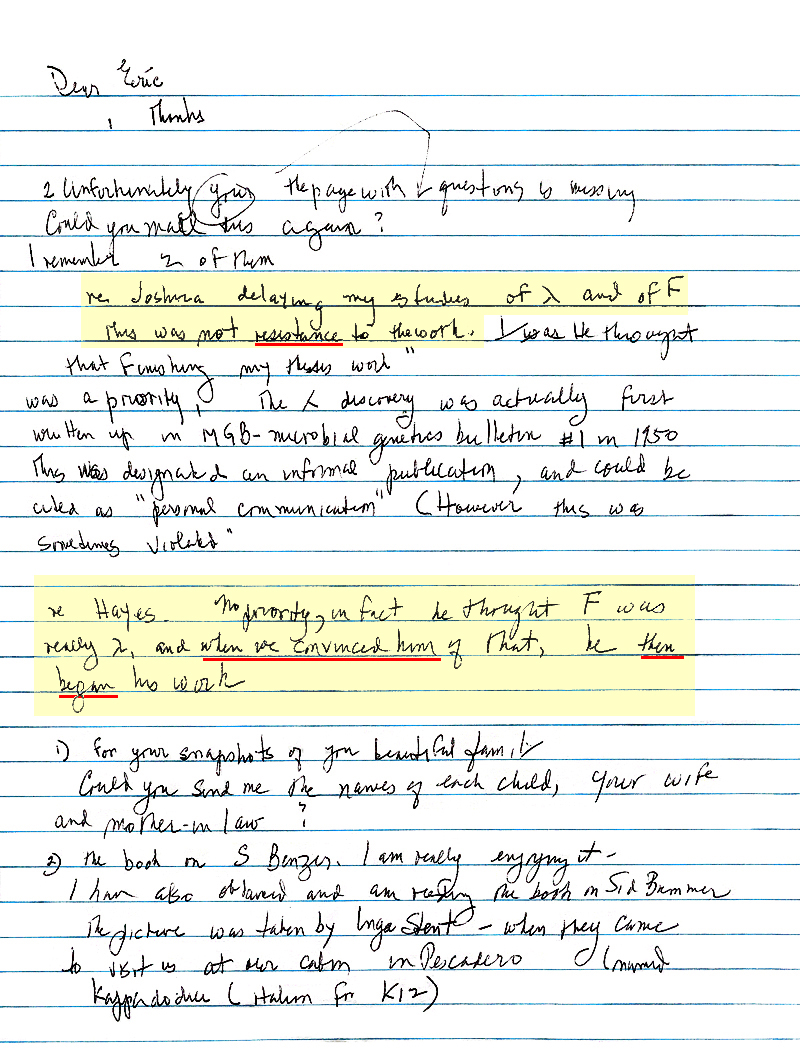 Dear Eric
1 Thanks
2 Unfortunately your the page with questions is missing
Could you mail this again?
I remember 2 of them
re Joshua delaying my studies of λ and of F
This was not resistance to the work. It was He thought
that Finishing my thesis work"
was a priority, The λ discovery was actually first
written up in MGB-microbial genetics bulletin #1 in 1950
This was designated an informal publication, and could be
cited as "personal communication" (However this was
sometimes violated"
re Hayes. No priority, in fact he thought F was
really λ, and when we convinced him of that, he then
began his work
1) for your snapshots of you beautiful family
Could you send me the names of each child, your wife
and mother-in law ?
2) the book on S Benzer. I am really enjoying it -
I have also obtained and am reading the book on Sid Brenner
The picture was taken by Inga Stent - when they came
to visit us at our cabin in Pescadero (named
Kappadodice (Italian for K12)